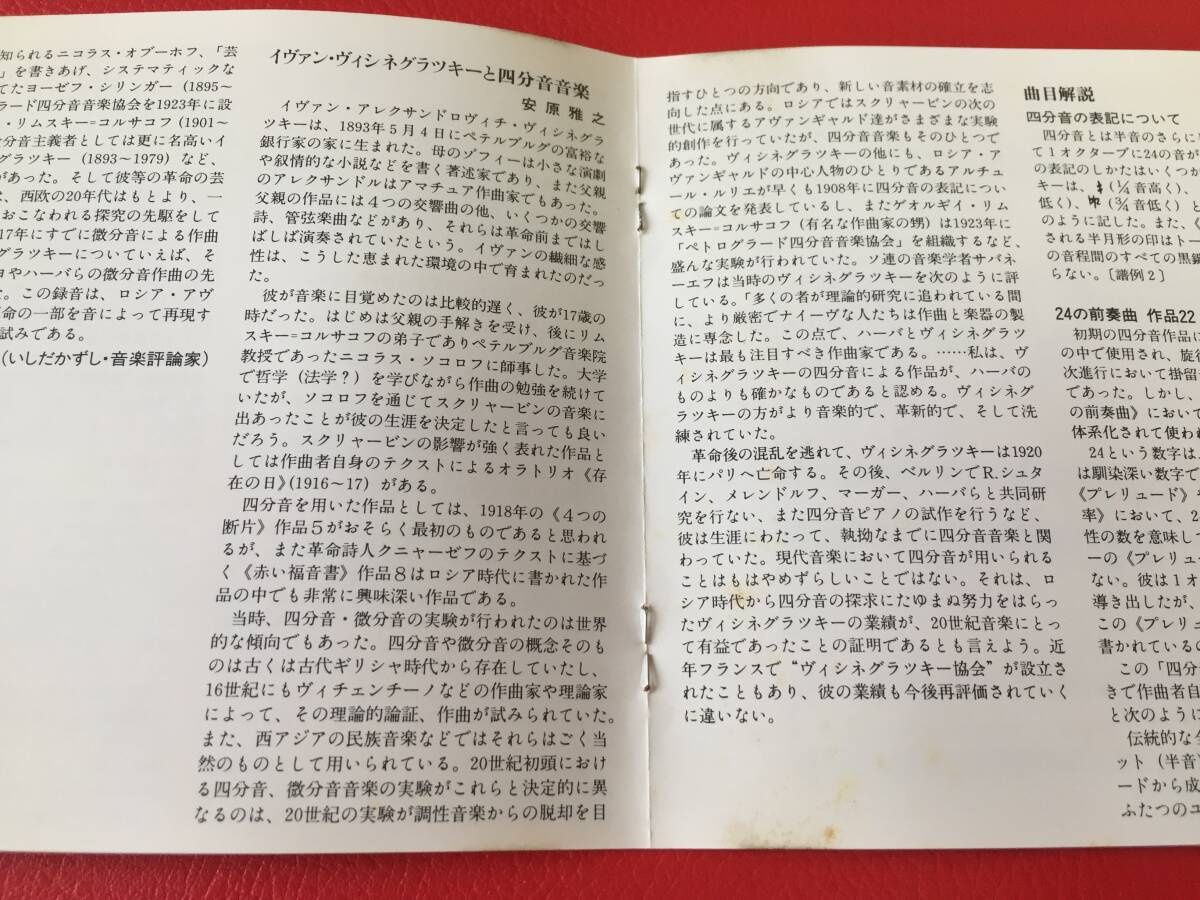 知られるニコラス・オブーホフ、「芸
」を書きあげ、システマティックな
てたヨーゼフ・シリンガー(1895~
グラード四分音音楽協会を1923年に設
・リムスキー=コルサコフ(1901~
分音主義者としては更に名高いイ
グラツキー(1893~1979)など、
があった。そして彼等の革命の芸
は、西欧の20年代はもとより、一
おこなわれる探究の先駆をして
17年にすでに微分音による作曲
グラツキーについていえば、そ
ヨやハーバらの微分音作曲の先
た。この録音は、ロシア・アヴ
革命の一部を音によって再現す
試みである。
(いしだかずし・音楽評論家)
イヴァン・ヴィシネグラツキーと四分音音楽
安原雅之
イヴァン・アレクサンドロヴィチ・ヴィシネグラ
ツキーは、1893年5月4日にペテルブルグの富裕な
銀行家の家に生まれた。母のゾフィーは小さな演劇
や叙情的な小説などを書く著述家であり、また父親
のアレクサンドルはアマチュア作曲家でもあった。
父親の作品には4つの交響曲の他、いくつかの交響
詩、管弦楽曲などがあり、それらは革命前まではし
ばしば演奏されていたという。イヴァンの繊細な感
性は、こうした恵まれた環境の中で育まれたのだっ
た。
彼が音楽に目覚めたのは比較的遅く、彼が17歳の
時だった。はじめは父親の手解きを受け、後にリム
スキー=コルサコフの弟子でありペテルブルグ音楽院
教授であったニコラス・ソコロフに師事した。大学
で哲学(法学?)を学びながら作曲の勉強を続けて
いたが、ソコロフを通じてスクリャービンの音楽に
出あったことが彼の生涯を決定したと言っても良い
だろう。スクリャービンの影響が強く表れた作品と
しては作曲者自身のテクストによるオラトリオ《存
在の日》(1916~17)がある。
四分音を用いた作品としては、1918年の《4つの
断片》作品5がおそらく最初のものであると思われ
るが、また革命詩人クニャーゼフのテクストに基づ
く《赤い福音書》作品8はロシア時代に書かれた作
品の中でも非常に興味深い作品である。
当時、四分音・微分音の実験が行われたのは世界
的な傾向でもあった。四分音や微分音の概念そのも
のは古くは古代ギリシャ時代から存在していたし、
16世紀にもヴィチェンチーノなどの作曲家や理論家
によって、その理論的論証、作曲が試みられていた。
また、西アジアの民族音楽などではそれらはごく当
然のものとして用いられている。20世紀初頭におけ
る四分音、微分音音楽の実験がこれらと決定的に異
なるのは、20世紀の実験が調性音楽からの脱却を目
指すひとつの方向であり、新しい音素材の確立を志
向した点にある。ロシアではスクリャービンの次の
世代に属するアヴァンギャルド達がさまざまな実験
的創作を行っていたが、四分音音楽もそのひとつで
あった。ヴィシネグラツキーの他にも、ロシア・ア
ヴァンギャルドの中心人物のひとりであるアルチュ
ール・ルリエが早くも1908年に四分音の表記につい
ての論文を発表しているし、またゲオルギイ・リム
スキー=コルサコフ(有名な作曲家の甥)は1923年に
「ペトログラード四分音音楽協会」を組織するなど、
盛んな実験が行われていた。ソ連の音楽学者サバネ
ーエフは当時のヴィシネグラツキーを次のように評
している。「多くの者が理論的研究に追われている間
に、より厳密でナイーヴな人たちは作曲と楽器の製
造に専念した。この点で、ハーバとヴィシネグラツ
キーは最も注目すべき作曲家である。……私は、ヴ
ィシネグラツキーの四分音による作品が、ハーバの
ものよりも確かなものであると認める。ヴィシネグ
ラツキーの方がより音楽的で、革新的で、そして洗
練されていた。
革命後の混乱を逃れて、ヴィシネグラツキーは1920
年にパリへ亡命する。その後、ベルリンでR.シュタ
イン、メレンドルフ、マーガー、ハーバらと共同研
究を行ない、また四分音ピアノの試作を行うなど、
彼は生涯にわたって、執拗なまでに四分音音楽と関
わっていた。現代音楽において四分音が用いられる
ことはもはやめずらしいことではない。それは、ロ
シア時代から四分音の探求にたゆまぬ努力をはらっ
たヴィシネグラツキーの業績が、20世紀音楽にとっ
て有益であったことの証明であるとも言えよう。近
年フランスで“ヴィシネグラツキー協会”が設立さ
れたこともあり、彼の業績も今後再評価されていく
に違いない。
曲目解説
四分音の表記について
四分音とは半音のさらに
て1オクターブに24の音が
の表記のしかたはいくつか
キーは、(¼音高く)、
低く)、(¾音低く)と
のように記した。また、《
される半月形の印はトー
の音程間のすべての黒鍵
らない。[譜例2]
24の前奏曲 作品22
初期の四分音作品に
の中で使用され、旋律
次進行において掛留
であった。しかし、
の前奏曲》において
体系化されて使われ
24という数字は、
は馴染深い数字で
《プレリュード》
率》において、2
性の数を意味して
ーの《プレリュー
ない。彼は1オ
導き出したが、
この《プレリュ
書かれているの
この「四分
きで作曲者自
と次のように
伝統的な全
ット(半音)
ードから成
ふたつのユ